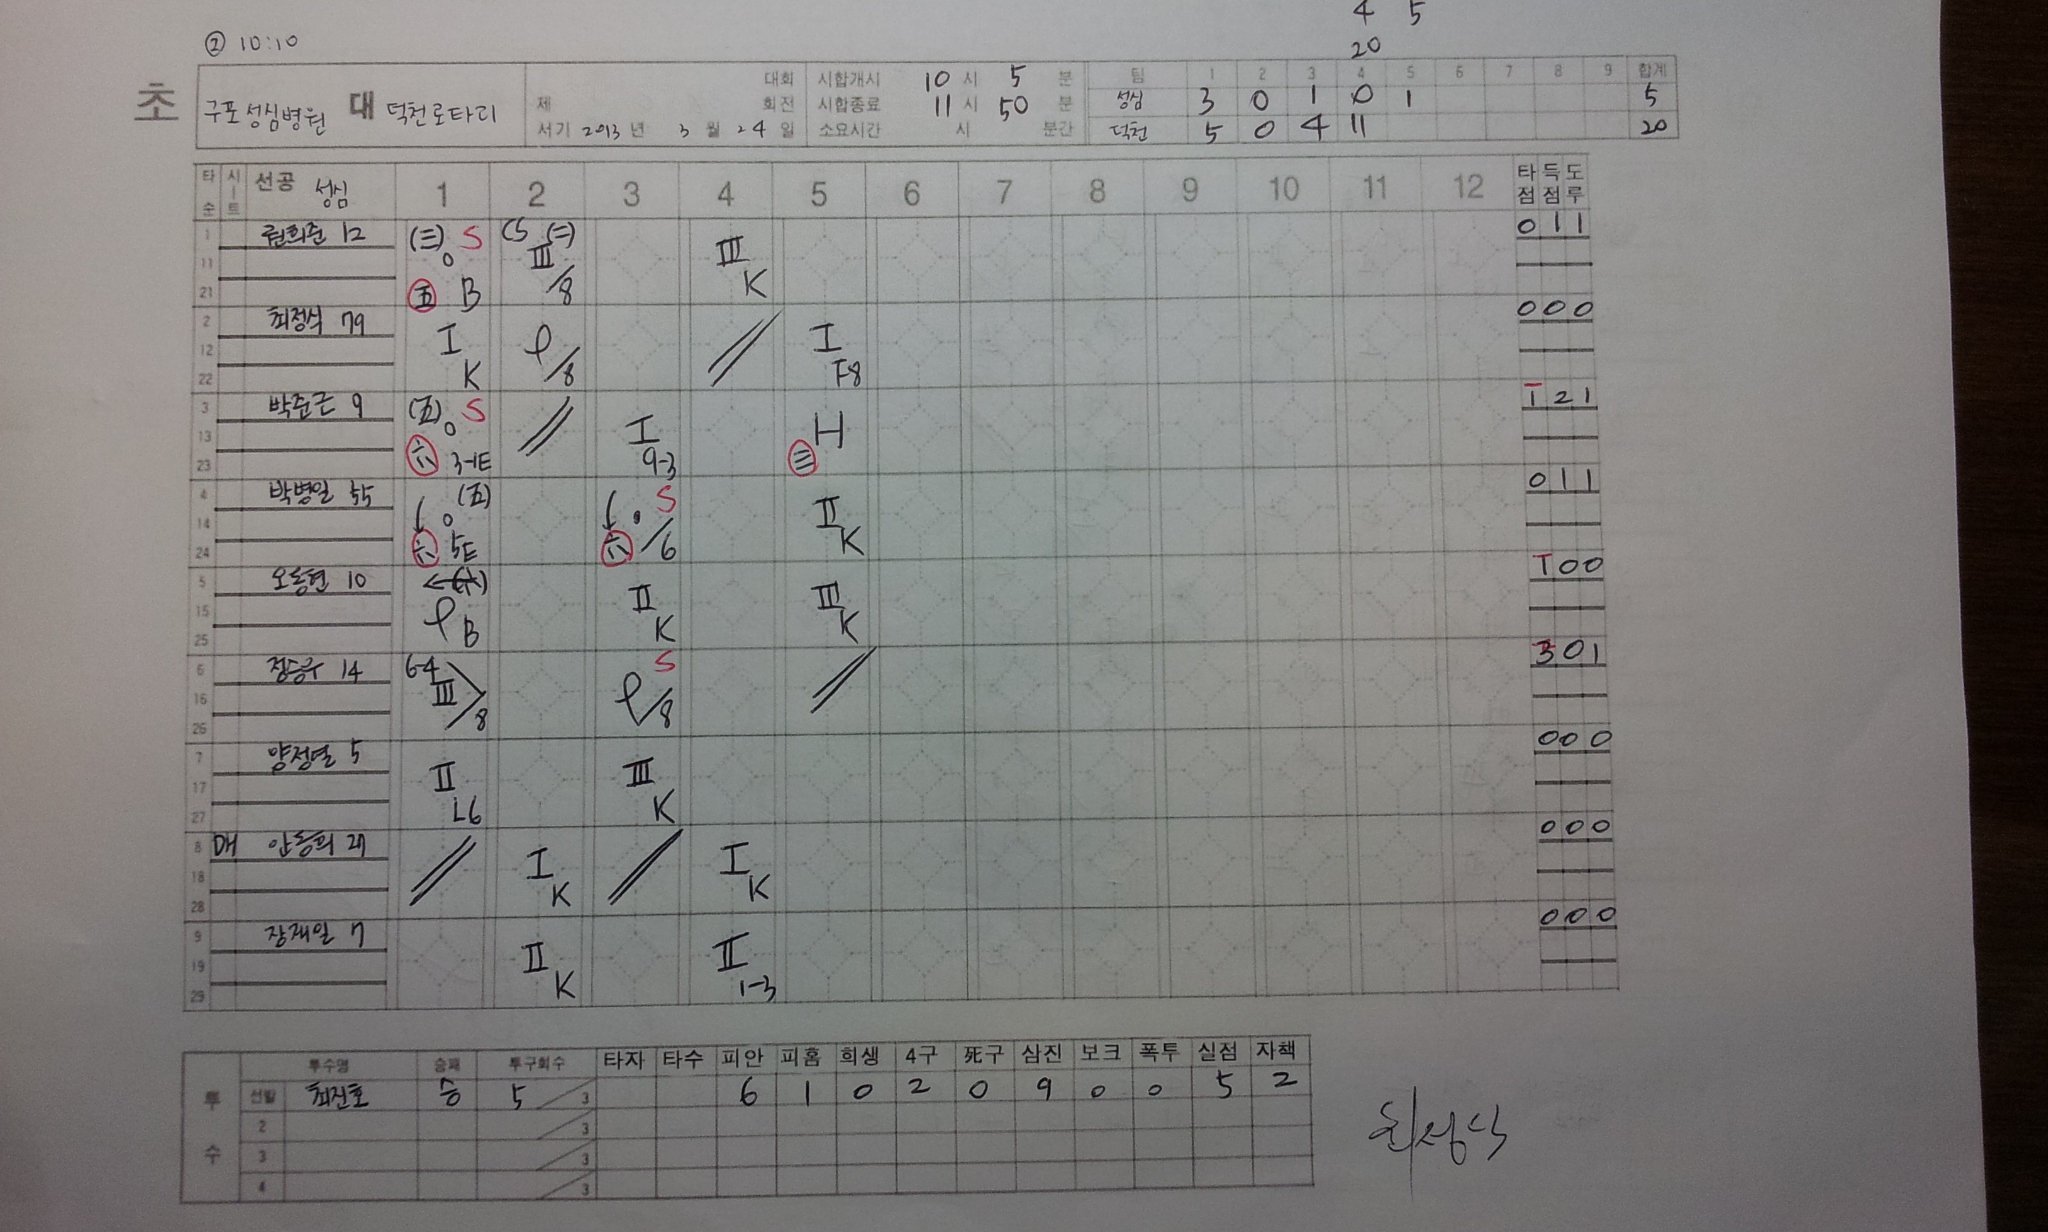 4 5
② 10:10
20
초
구포성심병원 대 덕천로타리
대회
제 회전
서기 2013 년 3 월 24 일
시합개시 10 시 5 분
시합종료 11 시 50 분
소요시간 시 분간
팀 1 2 3 4 5 6 7 8 9 합계
성심 3 0 1 0 1 5
덕천 5 0 4 11 20
타순 시트 선공 성심 1 2 3 4 5 6 7 8 9 10 11 12 타점 득점 도루
1 12 (三) S (5 (二) 0 1 1
11 0 III III
21 五 B /8 K
2 최정식 79 0 0 0
12 I /8 // I
22 K F8
3 박준근 9 (五) S 1 2 1
13 0 // I H
23 六 3-1E 9-3 三
4 박병일 55 (五) S 0 1 1
14 0 II
24 六 5E 六 /6 K
5 오동현 10 (六) 1 0 0
15 II III
25 B K K
6 정승우 14 6-4 S 3 0 1
16 III //
26 /8 /8
7 양정열 5 0 0 0
17 II III
27 L6 K
8 DH 안동희 27 0 0 0
18 // I // I
28 K K
9 장재일 7 0 0 0
19 II II
29 K 1-3
투수 투수명 승패 투구회수 타자 타수 피안 피홈 희생 4구 死구 삼진 보크 폭투 실점 자책
선발 최진호 승 5 3 6 1 0 2 0 9 0 0 5 2
2 3
3 3
4 3